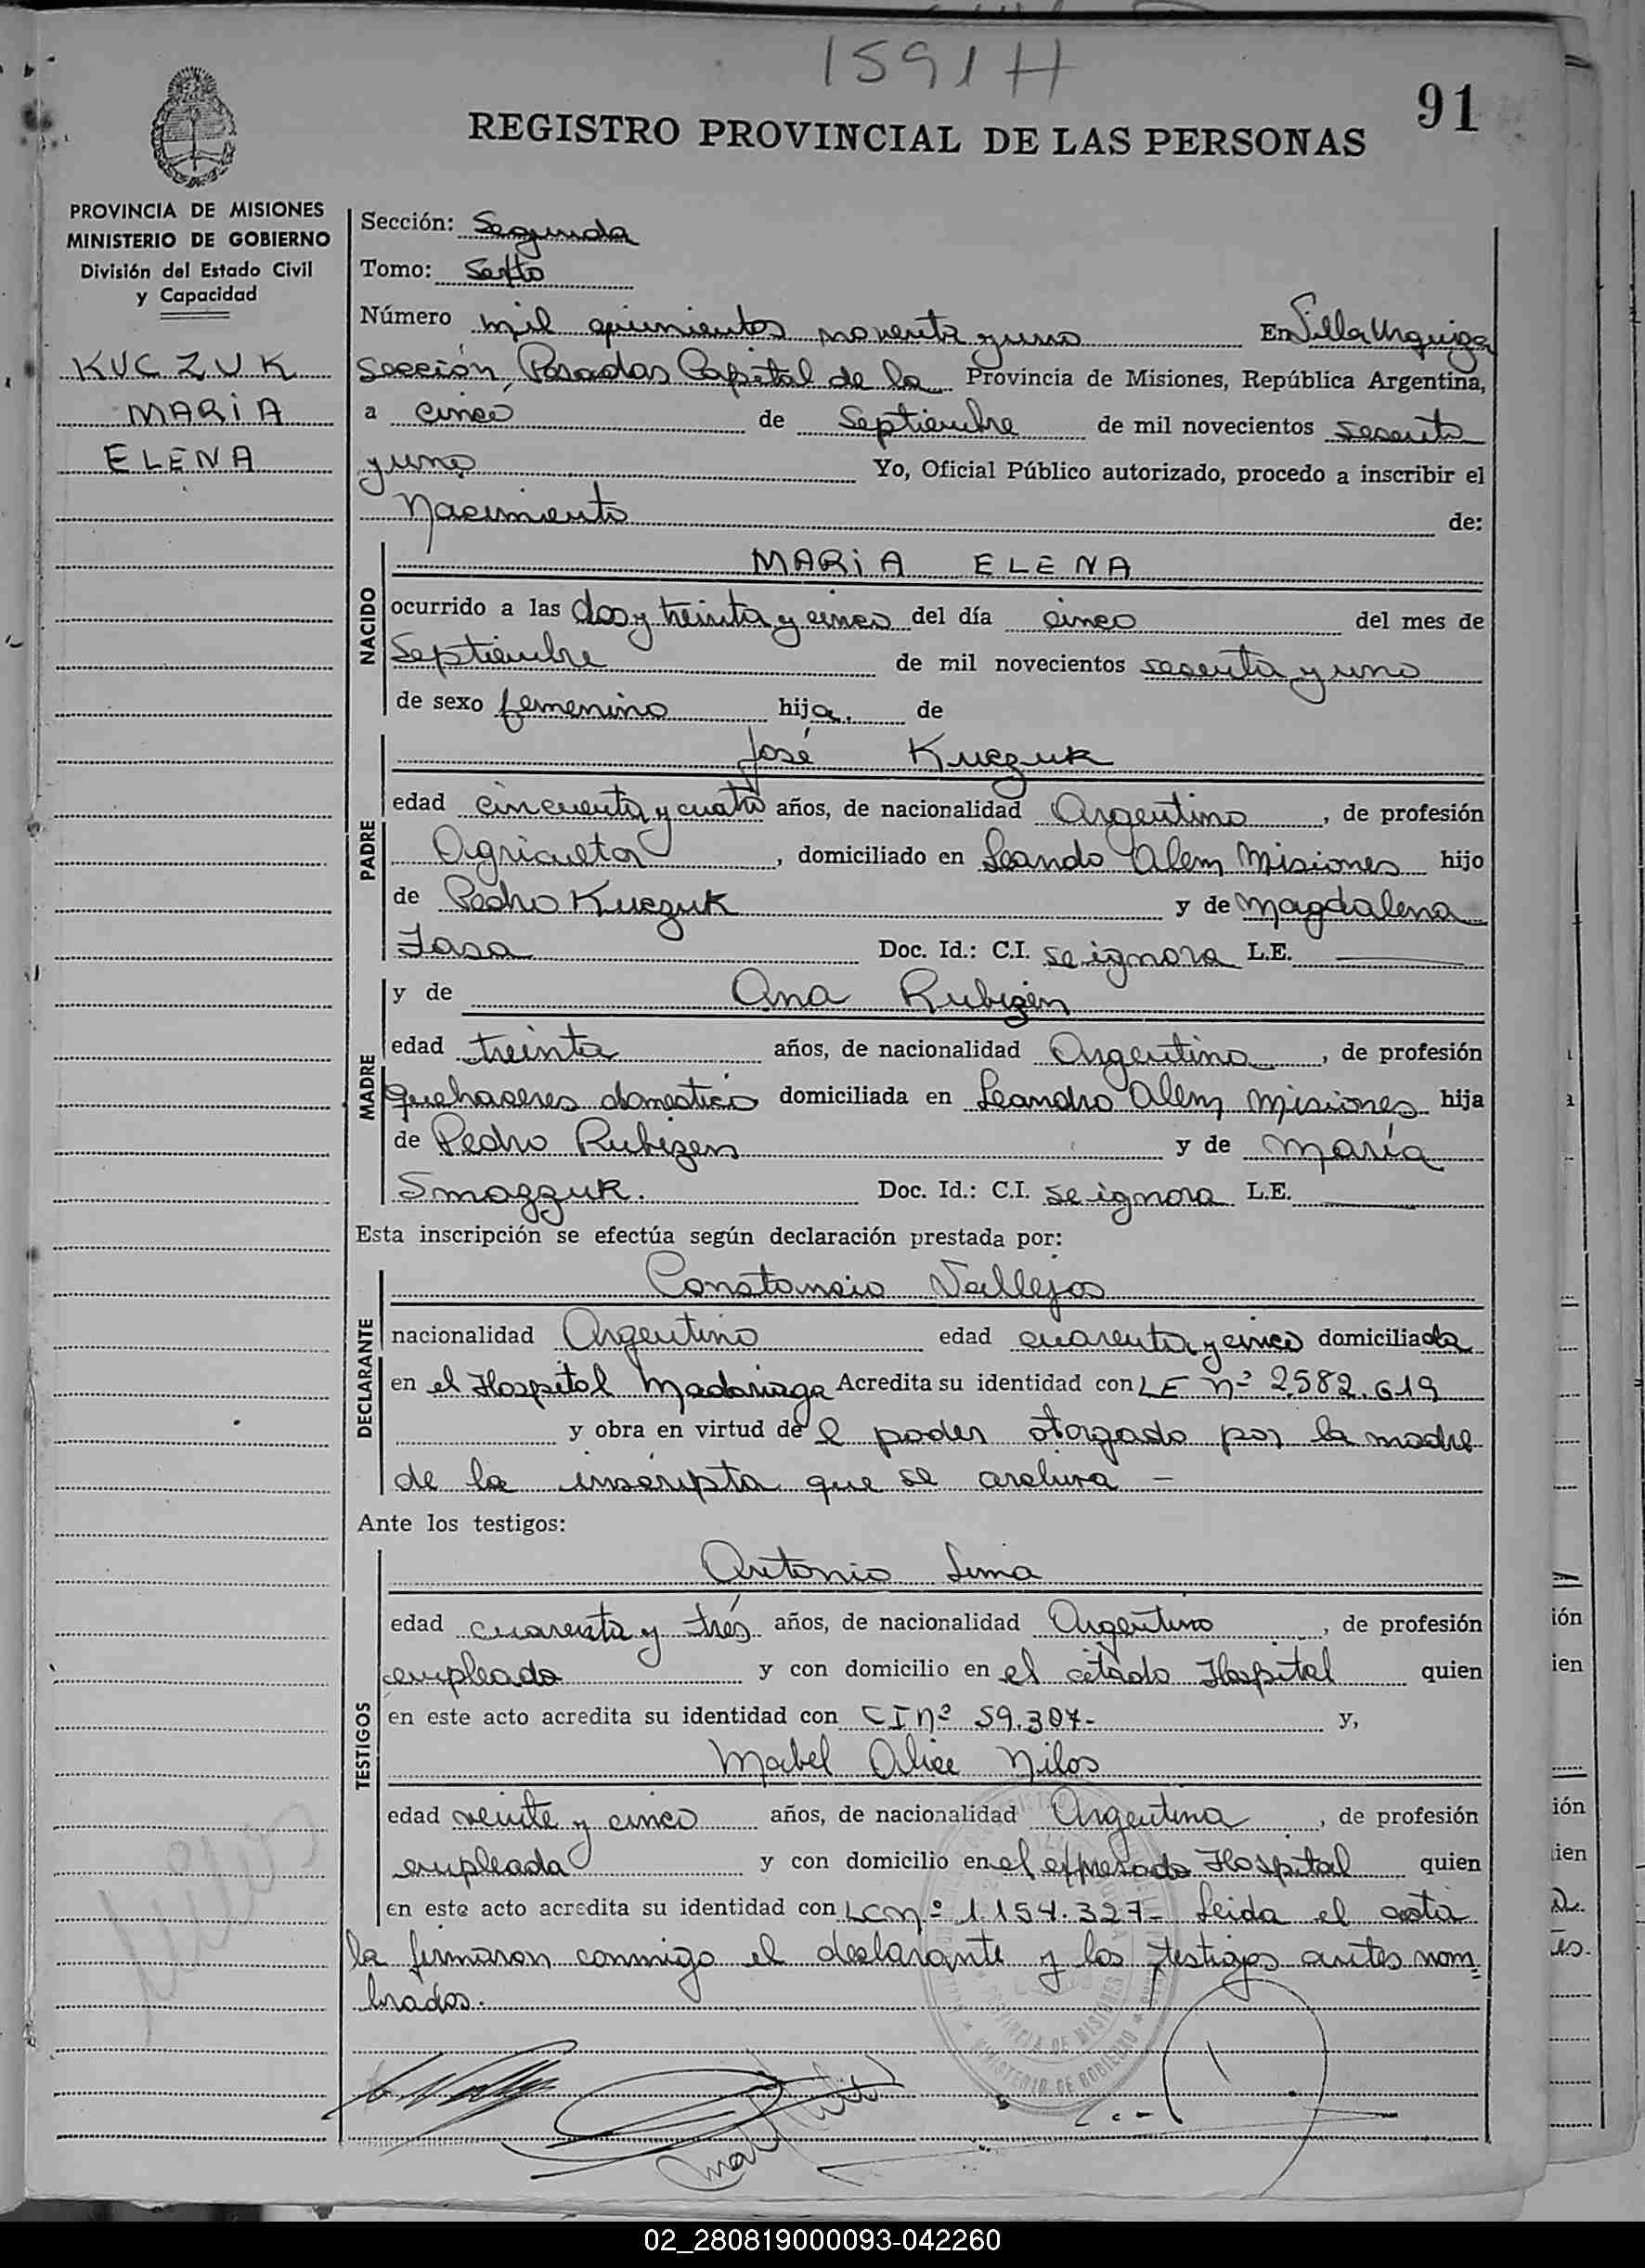 1591 H
91
REGISTRO PROVINCIAL DE LAS PERSONAS
PROVINCIA DE MISIONES
MINISTERIO DE GOBIERNO
División del Estado Civil
y Capacidad
KUCZUK
MARIA
ELENA
Sección: Segunda
Tomo: Sexto
Número mil quinientos noventa y uno En Villa Urquiza
sección, Posadas Capital de la Provincia de Misiones, República Argentina,
a cinco de Septiembre de mil novecientos sesenta
y uno Yo, Oficial Público autorizado, procedo a inscribir el
Nacimiento de:
NACIDO
MARIA ELENA
ocurrido a las dos y treinta y cinco del día cinco del mes de
Septiembre de mil novecientos sesenta y uno
de sexo femenino hija. de
PADRE
José Kuczuk
edad cincuenta y cuatro años, de nacionalidad Argentino, de profesión
Agricultor, domiciliado en Leando Alem Misiones hijo
de Pedro Kuczuk y de Magdalena
Jasa Doc. Id.: C.I. se ignora L.E.
MADRE
y de Ana Rubizen
edad treinta años, de nacionalidad Argentina, de profesión
quehaceres domestico domiciliada en Leandro Alem Misiones hija
de Pedro Rubizen y de María
Smagzuk. Doc. Id.: C.I. se ignora L.E.
Esta inscripción se efectúa según declaración prestada por:
DECLARANTE
Constancio Vallejos
nacionalidad Argentino edad cuarenta y cinco domiciliado
en el Hospital Madariaga Acredita su identidad con LE nº 2.582.619
y obra en virtud de l poder otorgado por la madre
de la inscripta que se archiva -
Ante los testigos:
TESTIGOS
Antonio Lima
edad cuarenta y trés años, de nacionalidad Argentino, de profesión
empleado y con domicilio en el citado Hospital quien
en este acto acredita su identidad con CI nº 59.307- y,
Mabel Alice Nilos
edad veinte y cinco años, de nacionalidad Argentina, de profesión
empleada y con domicilio en el expresado Hospital quien
en este acto acredita su identidad con LC nº 1.154.327- Leida el acta
la firmaron conmigo el declarante y los testigos antes nom=
brados.
PROVINCIA DE MISIONES
MINISTERIO DE GOBIERNO
02_280819000093-042260